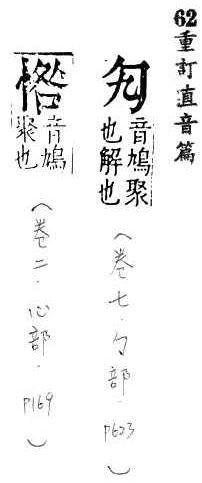 62重訂直音篇
勼
音鳩聚
也解也
（卷七．勹部．P623）
音鳩
聚也
（卷二．心部．P169）